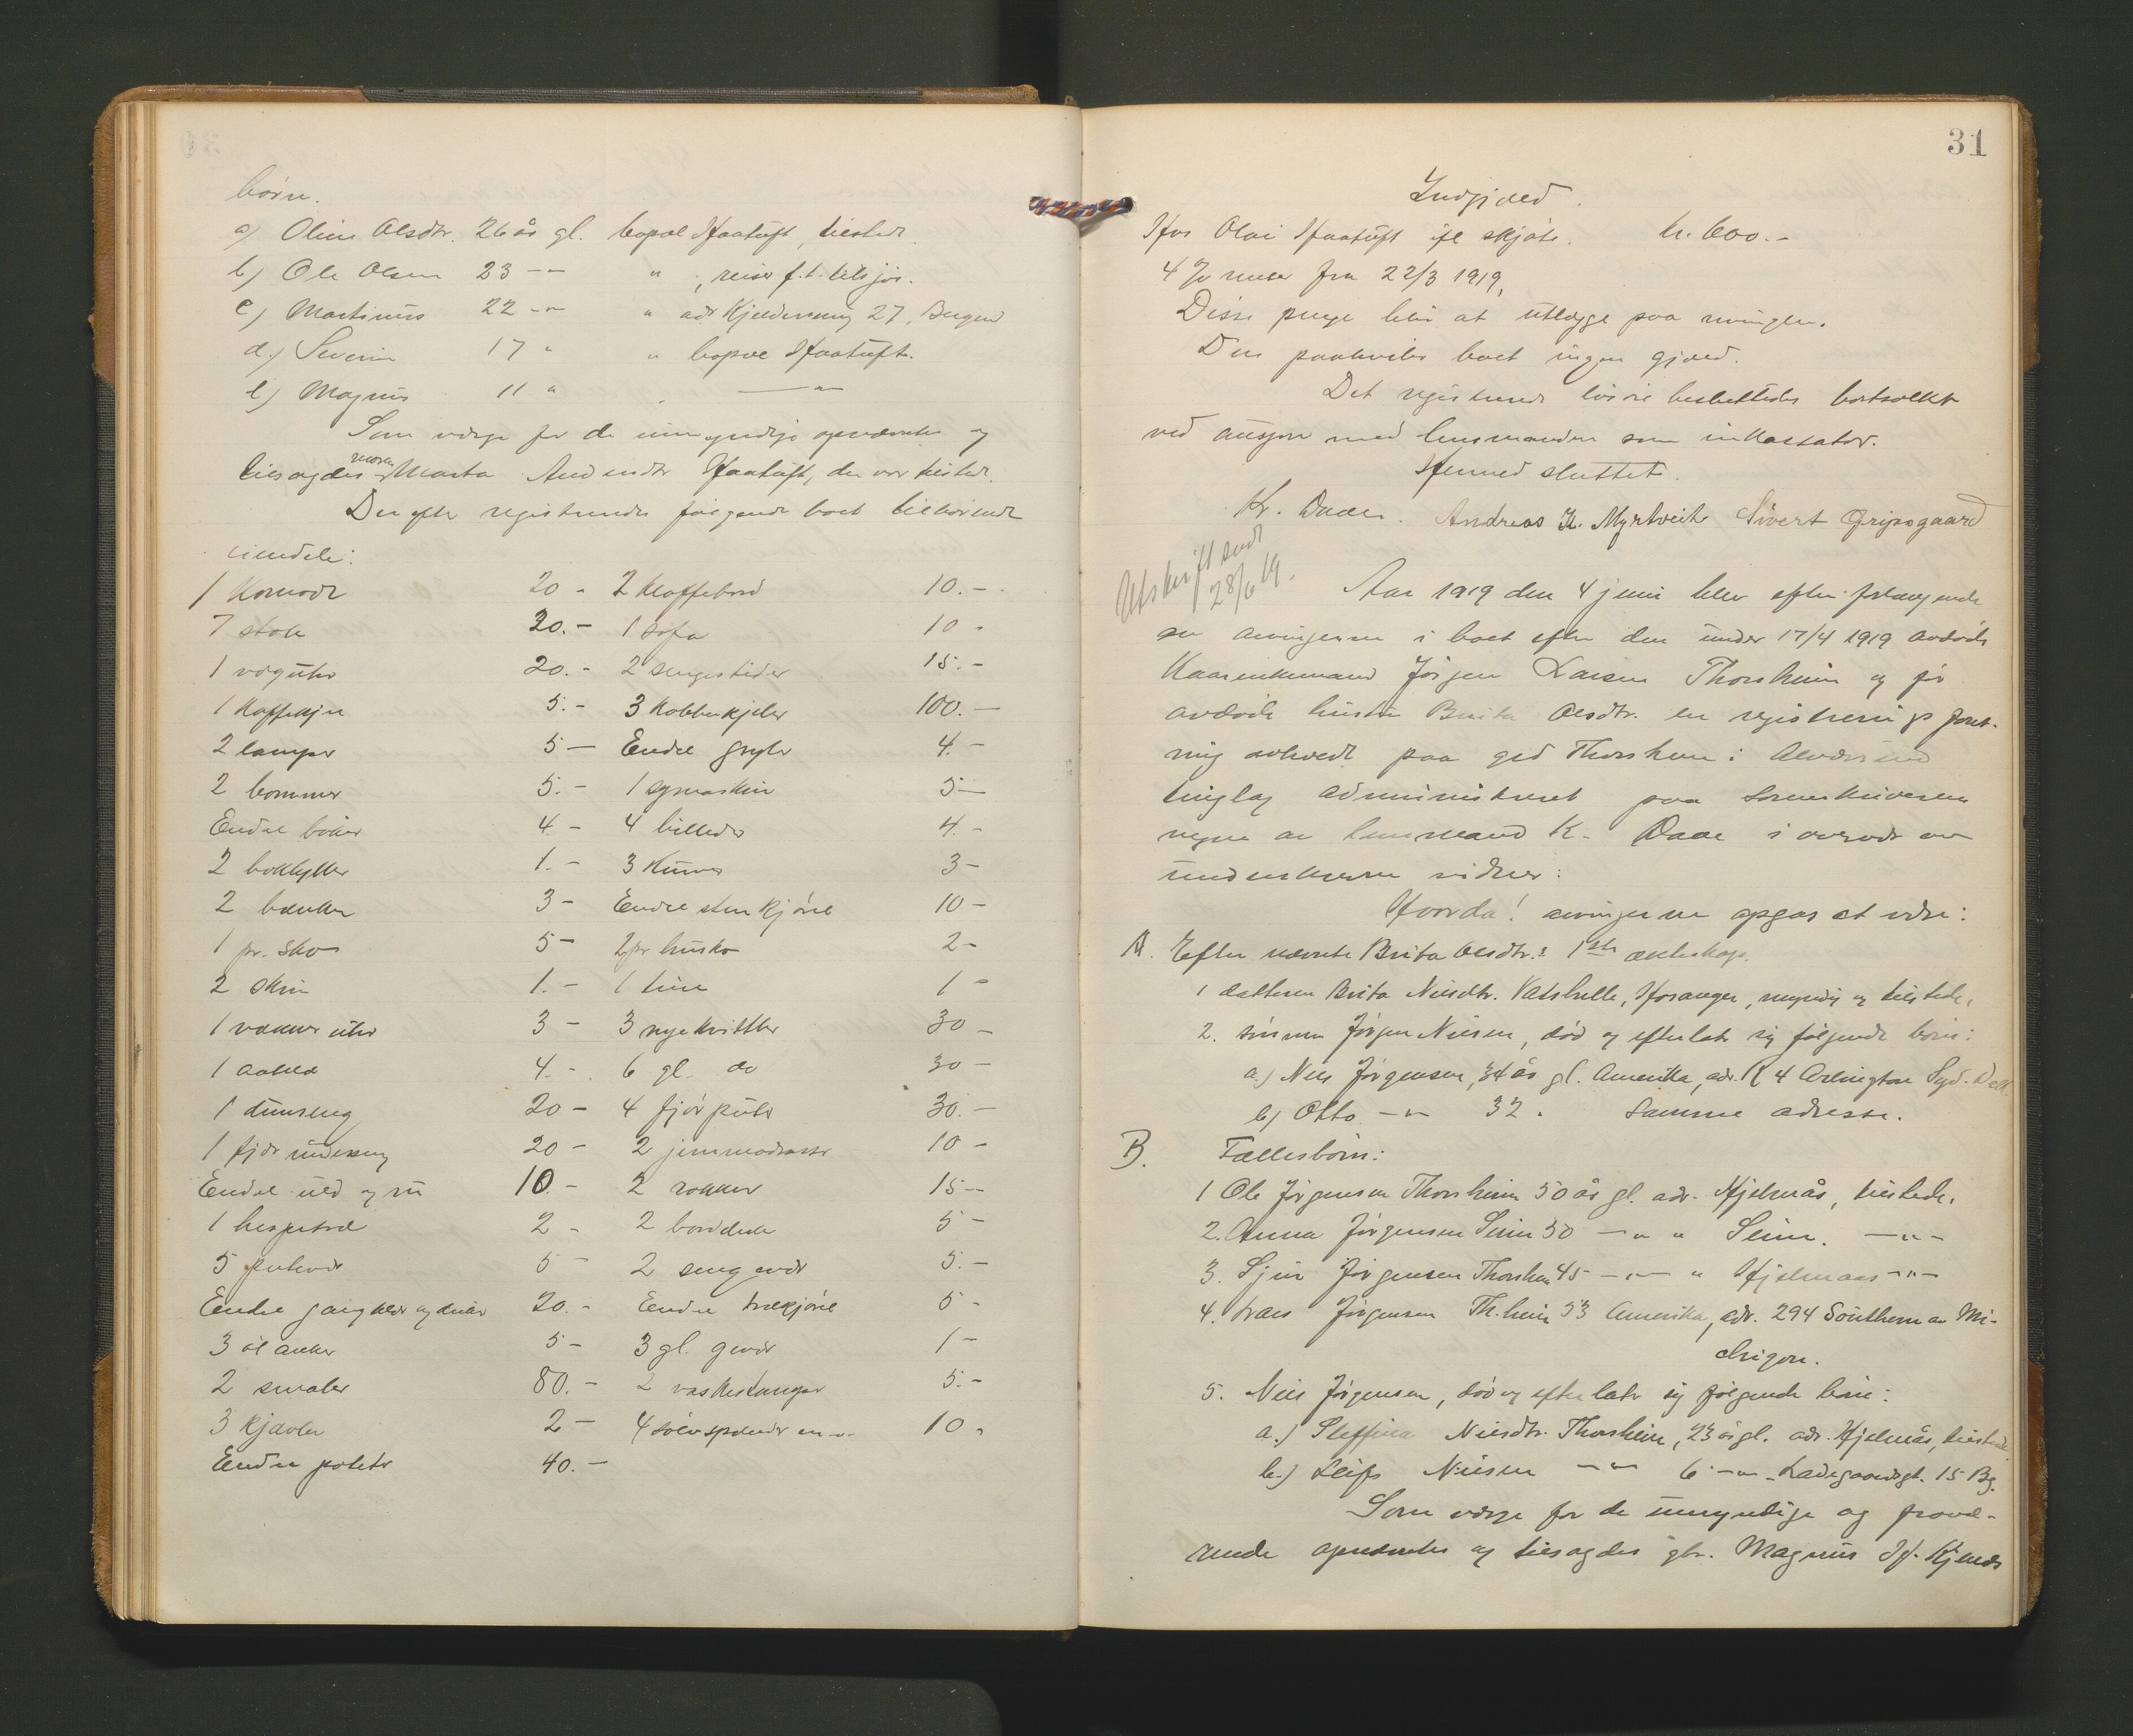 børn.
a) Oline Olsdtr. 26 år gl. bopæl Haatuft, tilstede.
b) Ole Olsen 23 -"- " , reiser f.t. tilsjøs.
c) Martinius 22 -"- " adr Kjeldersmug 27, Bergen
d.) Severin 17 " " bopæl Haatuft.
e) Magnus 11 " -"-
Som verge for de umyndige opnævntes og
tilsagdes moren Marta Andersdtr Haatuft, der var tilstede.
Derefter registrertes følgende boet tilhørende
eiendele:
1 Komode 20 - 2 Kaffebord 10.-
7 stole 20.- 1 sofa 10 -
1 væguhr 20.- 2 sengesteder 15.-
1 Kaffekjel 5.- 3 Kobberkjeler 100.-
2 lamper 5 - Endel gryter 4.-
2 bommer 5.- 1 symaskin 5-
Endel bøker 4.- 4 billeder 4.-
2 bokhyller 1.- 3 Kurver 3-
2 bænker 3- Endel stenkjørel 10-
1 pr. sko 5- 2 pr husko 2-
2 skrin 1.- 1 tine 1-
1 vækker uhr 3- 3 nye kvittler 30-
1 aaklæ 4.- 6 gl. do 30-
1 dunseng 20- 4 fjør puter 30.-
1 fjør underseng 20- 2 jernmadrasser 10-
Endel uld og 10.- 2 rokker 15-
1 hespetræ 2- 2 bordduke 5-
5 putevar 5- 2 seng 5.-
Endel gangklær og 20.- Endel trækjørel 5-
3 øl anker 5- 3 gl. 1-
2 smaler 80.- 2 5.-
3 kjævler 2- 4 sølvspænder m.v. 10-
Endel poteter 40.-
31
Indgjæld.
Hos Olai Haatuft ifl skjøte. kr. 600.-
4 % renter fra 22/3 1919.
Disse penge blir at utlægge paa arvingerne.
Der paahviler boet ingen gjæld.
Det registrerte løsøre besluttedes bortsolgt
ved auksjon med lensmanden som inkassator.
Hermed sluttet.
Kr. Daae. Andreas K. Myrtveit Sivert Gripsgaard
Utskrift sendt
28/6 19.
Aar 1919 den 4 juni blev efter forlangende
av arvingerne i boet efter den under 17/4 1919 avdøde
Kaarenkemand Jørgen Larsen Thorsheim og før
avdøde hustru Brita Olsdtr. en registreringsforret-
ning avholdt paa grd Thorsheim i Alversund
tinglag administreret paa sorenskriverens
vegne av lensmand K. Daae i overvær av
underskrevne vidner:
Hvorda! arvingerne opgas at være:
A. Efter nævnte Brita Olsdtr.s 1ste ækteskap.
1 datteren Brita Nilsdtr. Vatshelle, Hosanger, myndig og tilstede.
2. sønnen Jørgen Nilsen, død og efterlatt sig følgende børn:
a.) Nils Jørgensen, 34 år gl. Amerika, adr. R 4 Arlington Syd. Dak.
b) Otto -"- 32 . samme adresse.
B. Fællesbørn:
1 Ole Jørgensen Thorsheim 50 år gl. adr. Hjelmås, tilstede.
2. Anna Jørgensen Seim 50 -"- " Seim. -"-
3. Sjur Jørgensen Thorsheim 45 -"- " Hjelmaas -"-
4. Lars Jørgensen Th.heim 53 Amerika, adr. 294 Southern av Mi-
chigan.
5. Nils Jørgensen, død og efterlatt sig følgende børn:
a.) Steffina Nilsdtr. Thorsheim, 23 år gl. adr. Hjelmås, tilstede
b.) Leif Nilsen -"- 6 -"- Ladegaardsgt. 15 Bg.
Som verge for de umyndige og fravæ-
rende opnævntes og tilsagdes gbr. Magnus H.